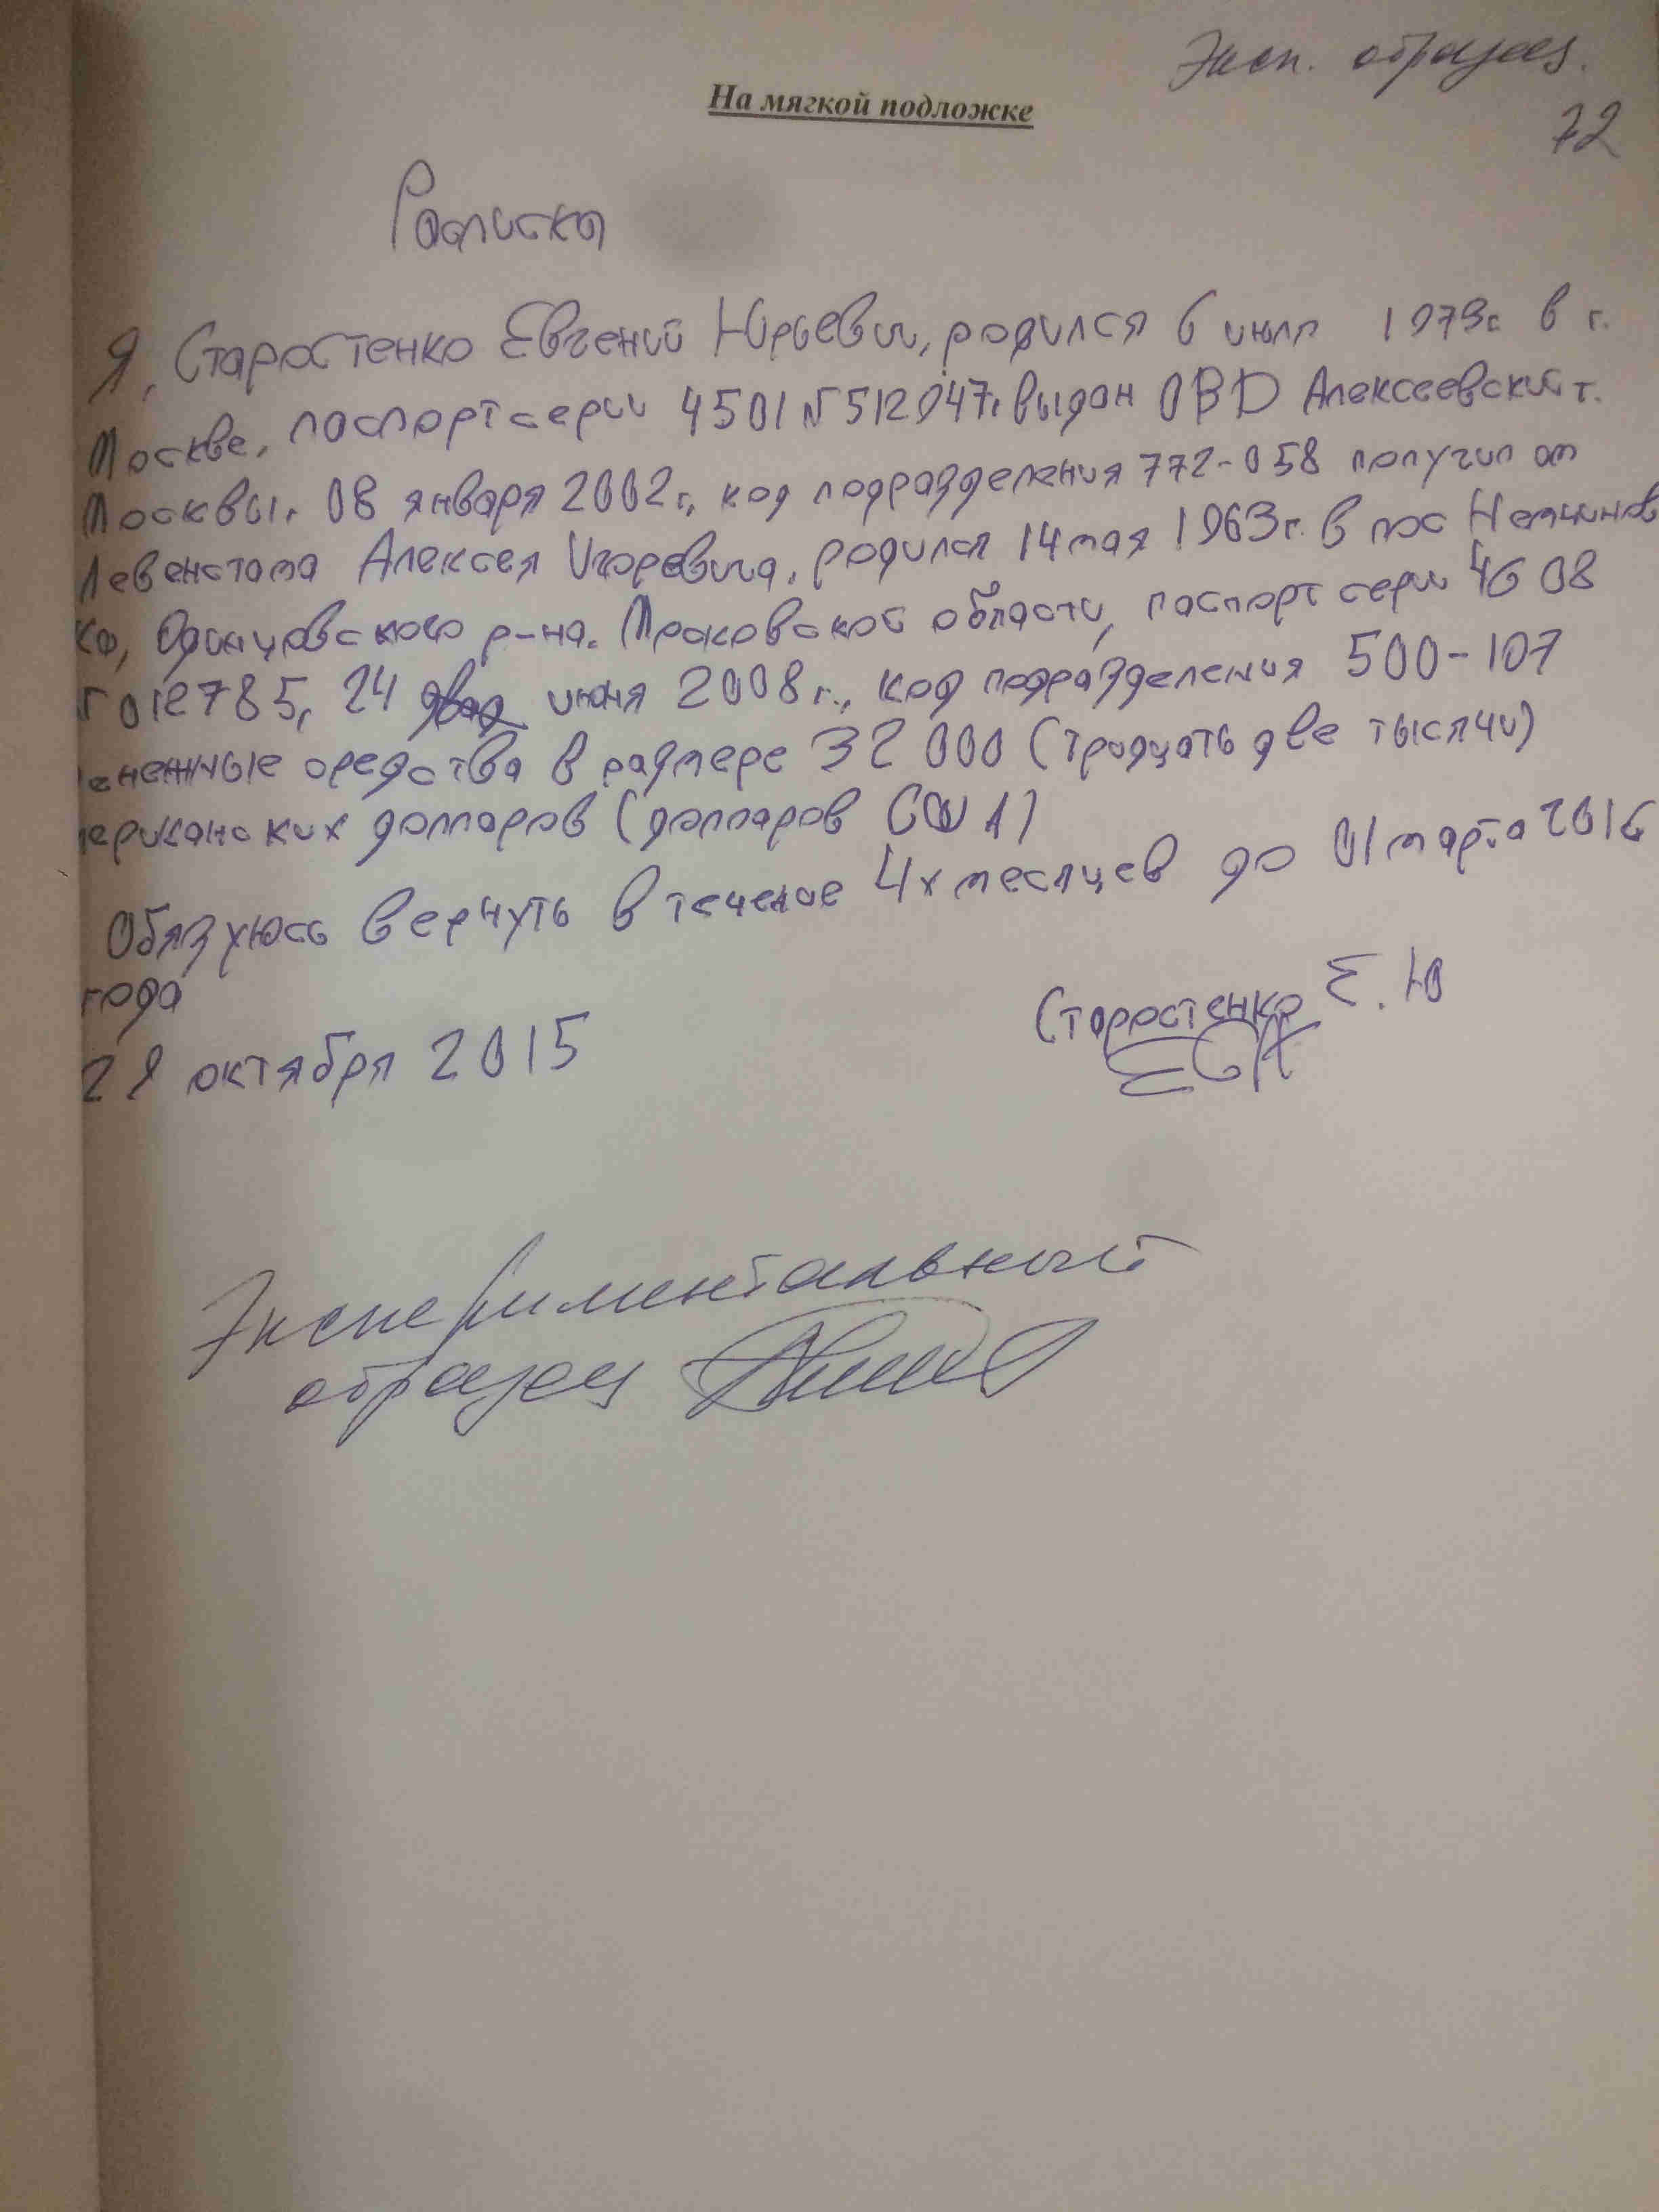 Эксп. образец.
На мягкой подложке
72
Расписка
Я, Старостенко Евгений Юрьевич, родился 6 июля 1973г. в г.
Москве, паспорт серии 4501 № 512947, выдан ОВД Алексеевский г.
Москвы, 08 января 2002г., код подразделения 772-058 получил от
Левенстама Алексея Игоревича, родился 14 мая 1963г. в пос Немчинов
ко, Одинцовского р-на. Московской области, паспорт серии 46 08
012785, 24 июня 2008г., код подразделения 500-107
енежные средства в размере 32 000 (тридцать две тысячи)
мериканских долларов (долларов США)
Обязуюсь вернуть в течение 4х месяцев до 01 марта 2016
года
28 октября 2015
Старостенко Е. Ю
Экспериментальный
образец